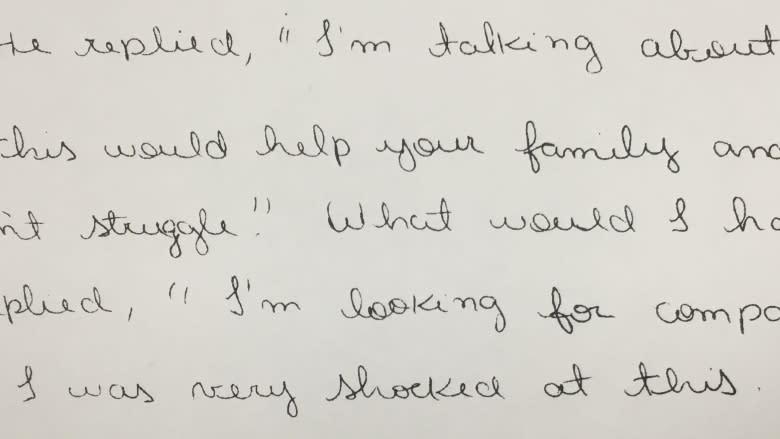 He replied, "I'm talking about
this would help your family and
n't struggle." What would I ha
plied, "I'm looking for compa
I was very shocked at this.